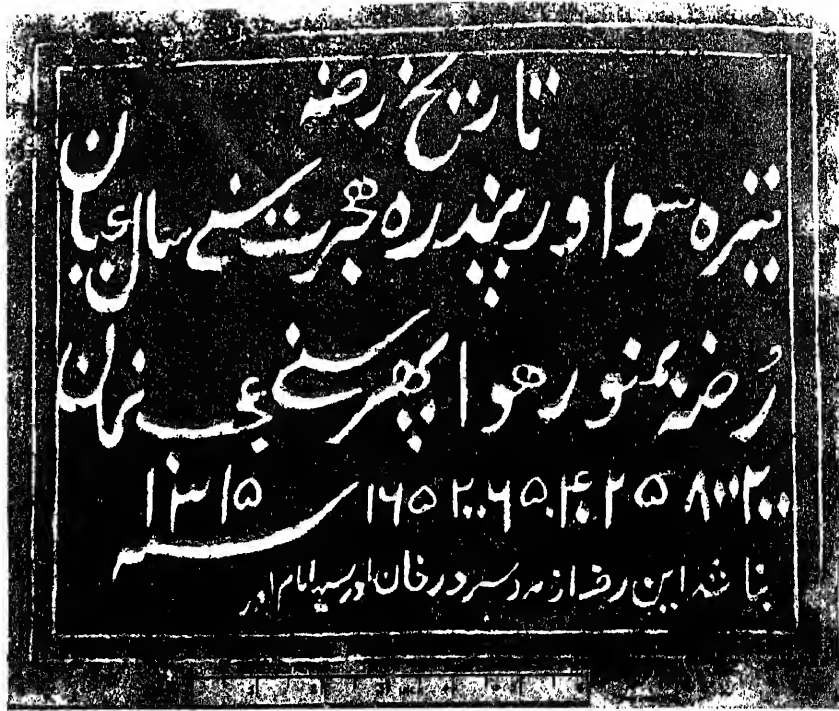 تاریخ رضہ
تیرہ سو اور پندرہ ہجرت سنے سال عیان
رُضہ یمنور ہوا پھر سنے عجب نہان
۲۰۰ ۸۰۰ ۵ ۲ ۴۰ ۵۰ ۶ ۲۰۰ ۱۶۵ سنہ ۱۳۱۵
بنا شد این رضہ از مدد سردر خان اور سید امام